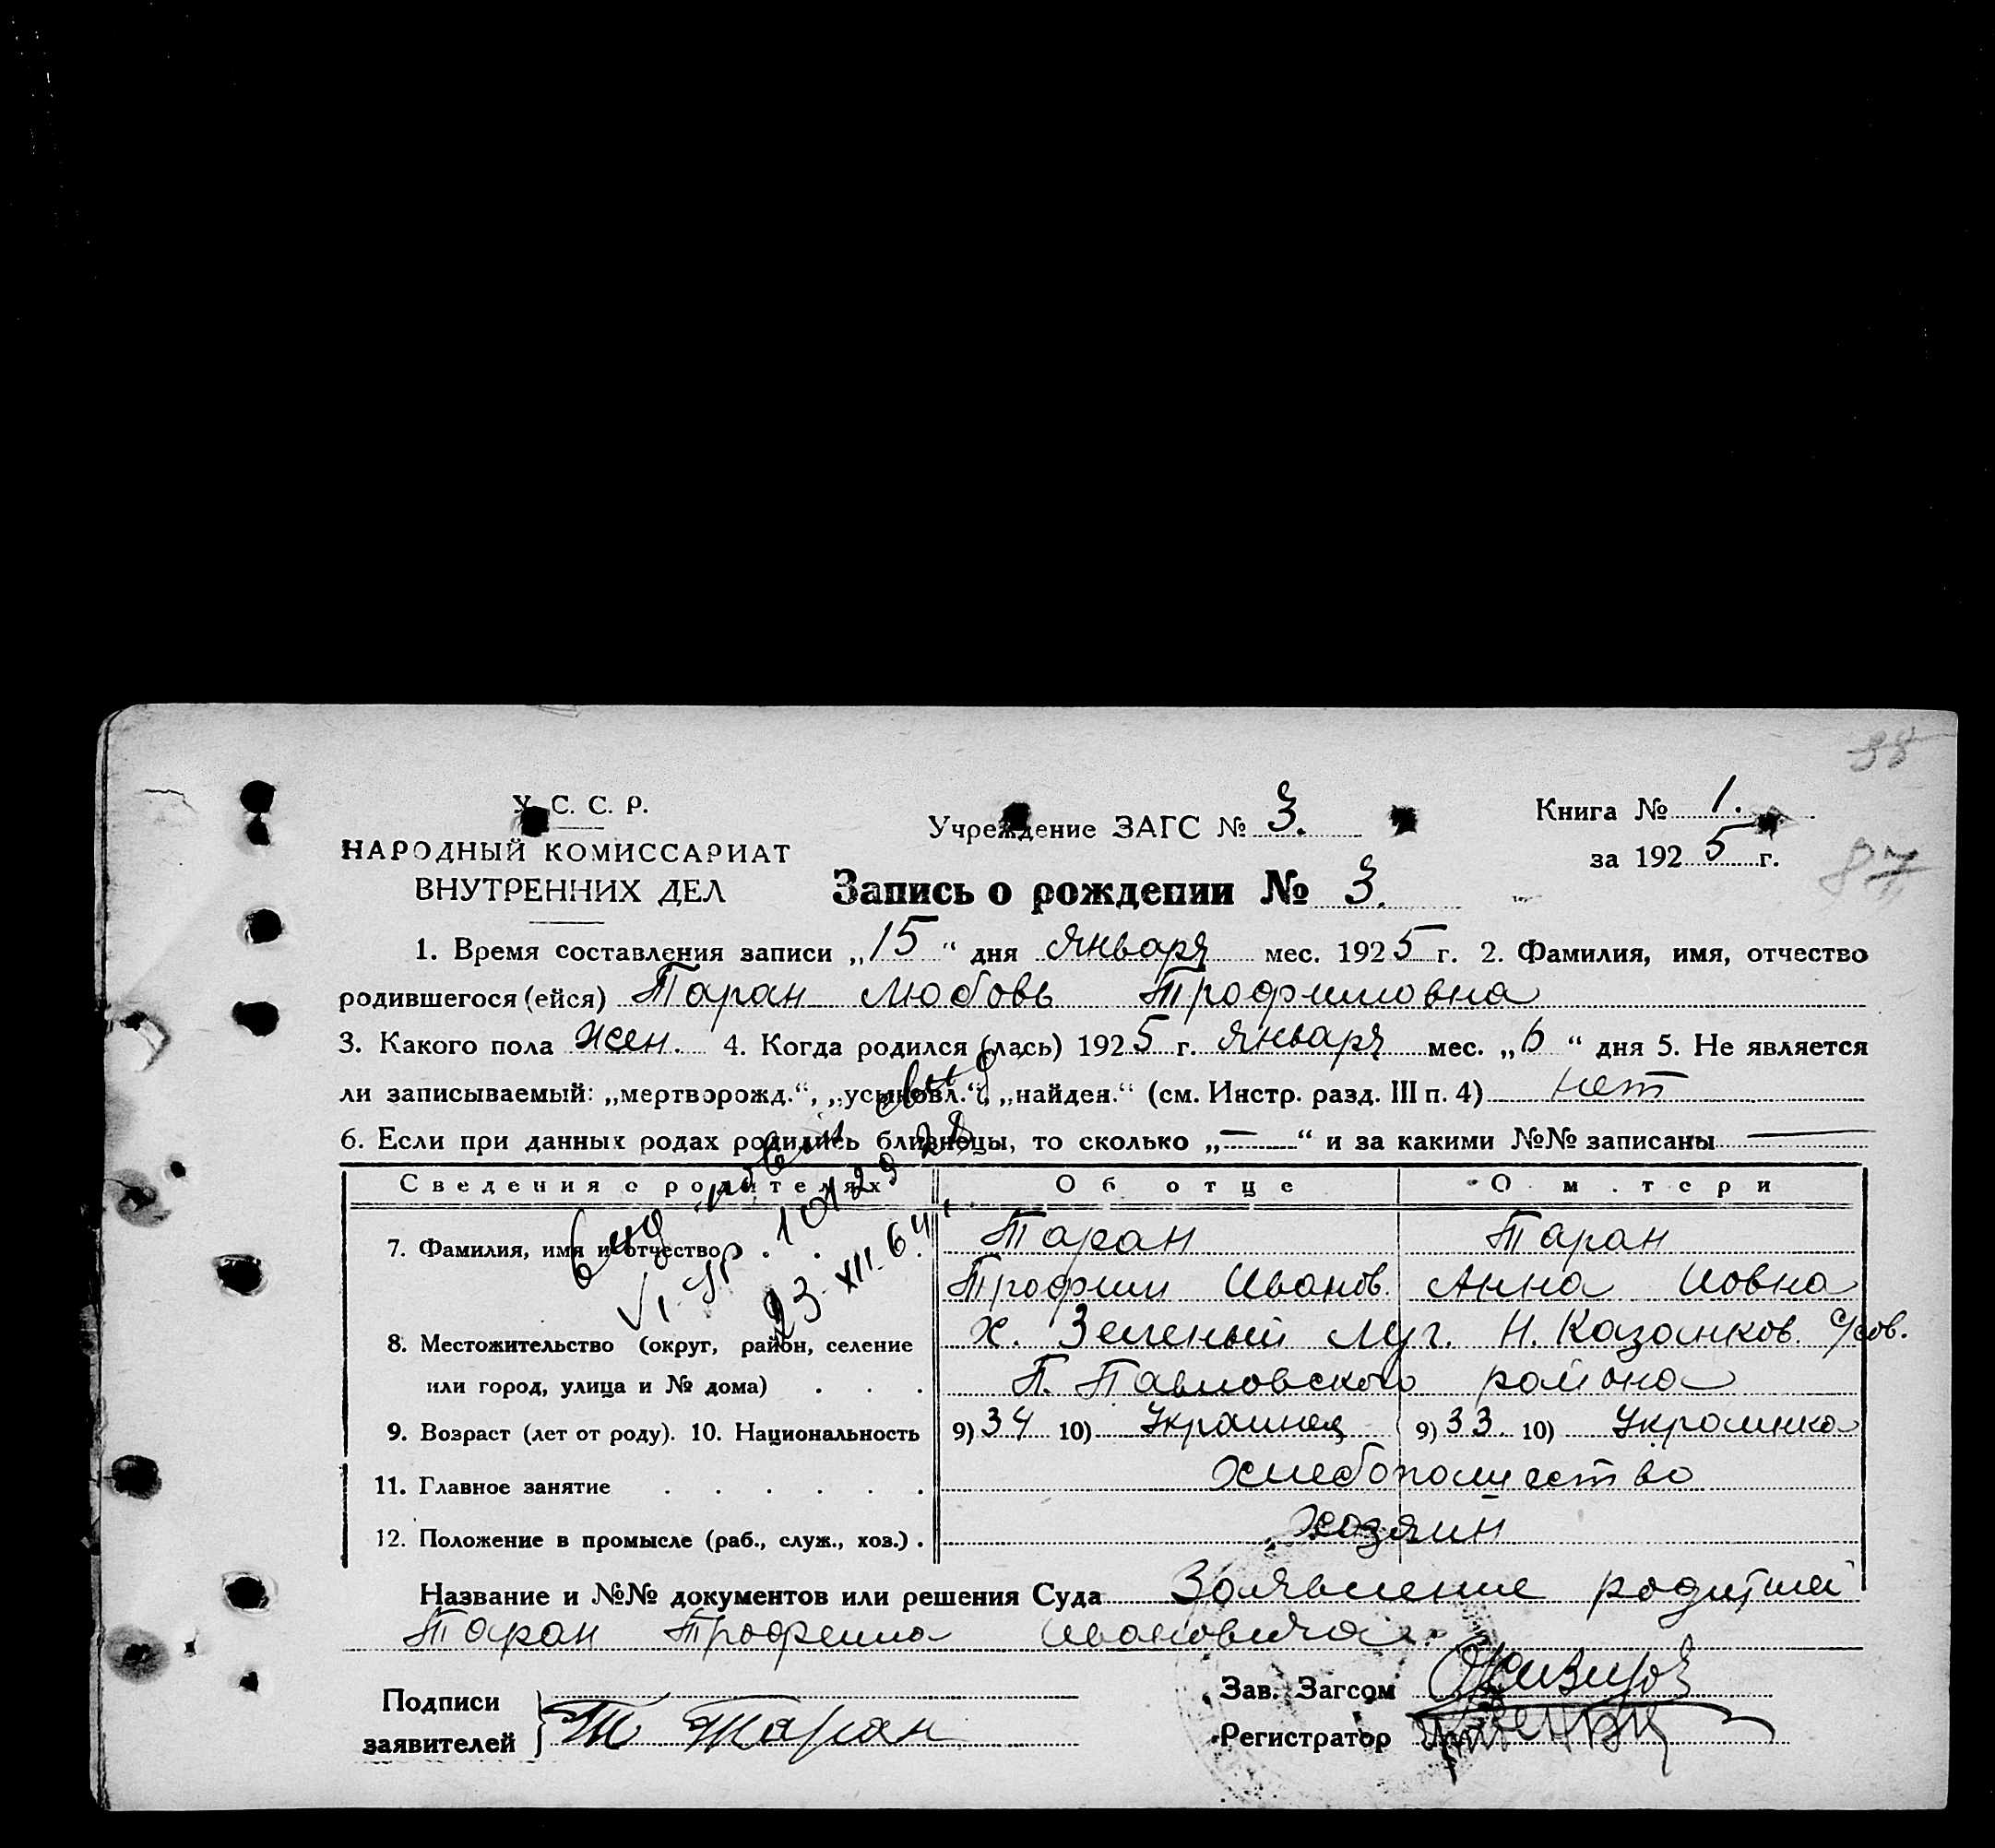 38
У. С. С. Р.
НАРОДНЫЙ КОМИССАРИАТ
ВНУТРЕННИХ ДЕЛ
Учреждение ЗАГС № 3.
Книга № 1.
за 1925 г.
87
Запись о рождении № 3.
1. Время составления записи „15“ дня января мес. 1925 г. 2. Фамилия, имя, отчество
родившегося (ейся) Таран Любовь Трофимовна
3. Какого пола жен. 4. Когда родился (лась) 1925 г. января мес. „6“ дня 5. Не является
ли записываемый: „мертворожд.“, „усыновл.“, „найден.“ (см. Инстр. разд. III п. 4) нет
6. Если при данных родах родились близнецы, то сколько „—“ и за какими №№ записаны —
Сведения о родителях Об отце О м.тери
7. Фамилия, имя и отчество Таран Таран
Трофим Иванов. Анна Иовна
8. Местожительство (округ, район, селение х. Зеленый Луг. Н. Казанков.
или город, улица и № дома) П. Павловского района
9. Возраст (лет от роду). 10. Национальность 9) 34 10) Украинец 9) 33. 10) Украинка
11. Главное занятие хлебопашество
12. Положение в промысле (раб., служ., хоз.) хозяин
23-XII-64
Название и №№ документов или решения Суда Заявление родителей
Таран Трофима Ивановича
Подписи
заявителей Т Таран
Зав. Загсом
Регистратор